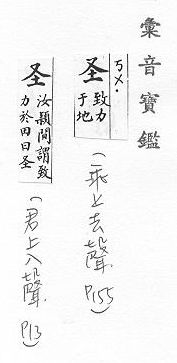 彙音寶鑑
ㄎㄨ·
圣 致力于地
(二乖上去聲 P155)
圣 汝潁間謂致力於田曰圣
(君上入聲 P13)